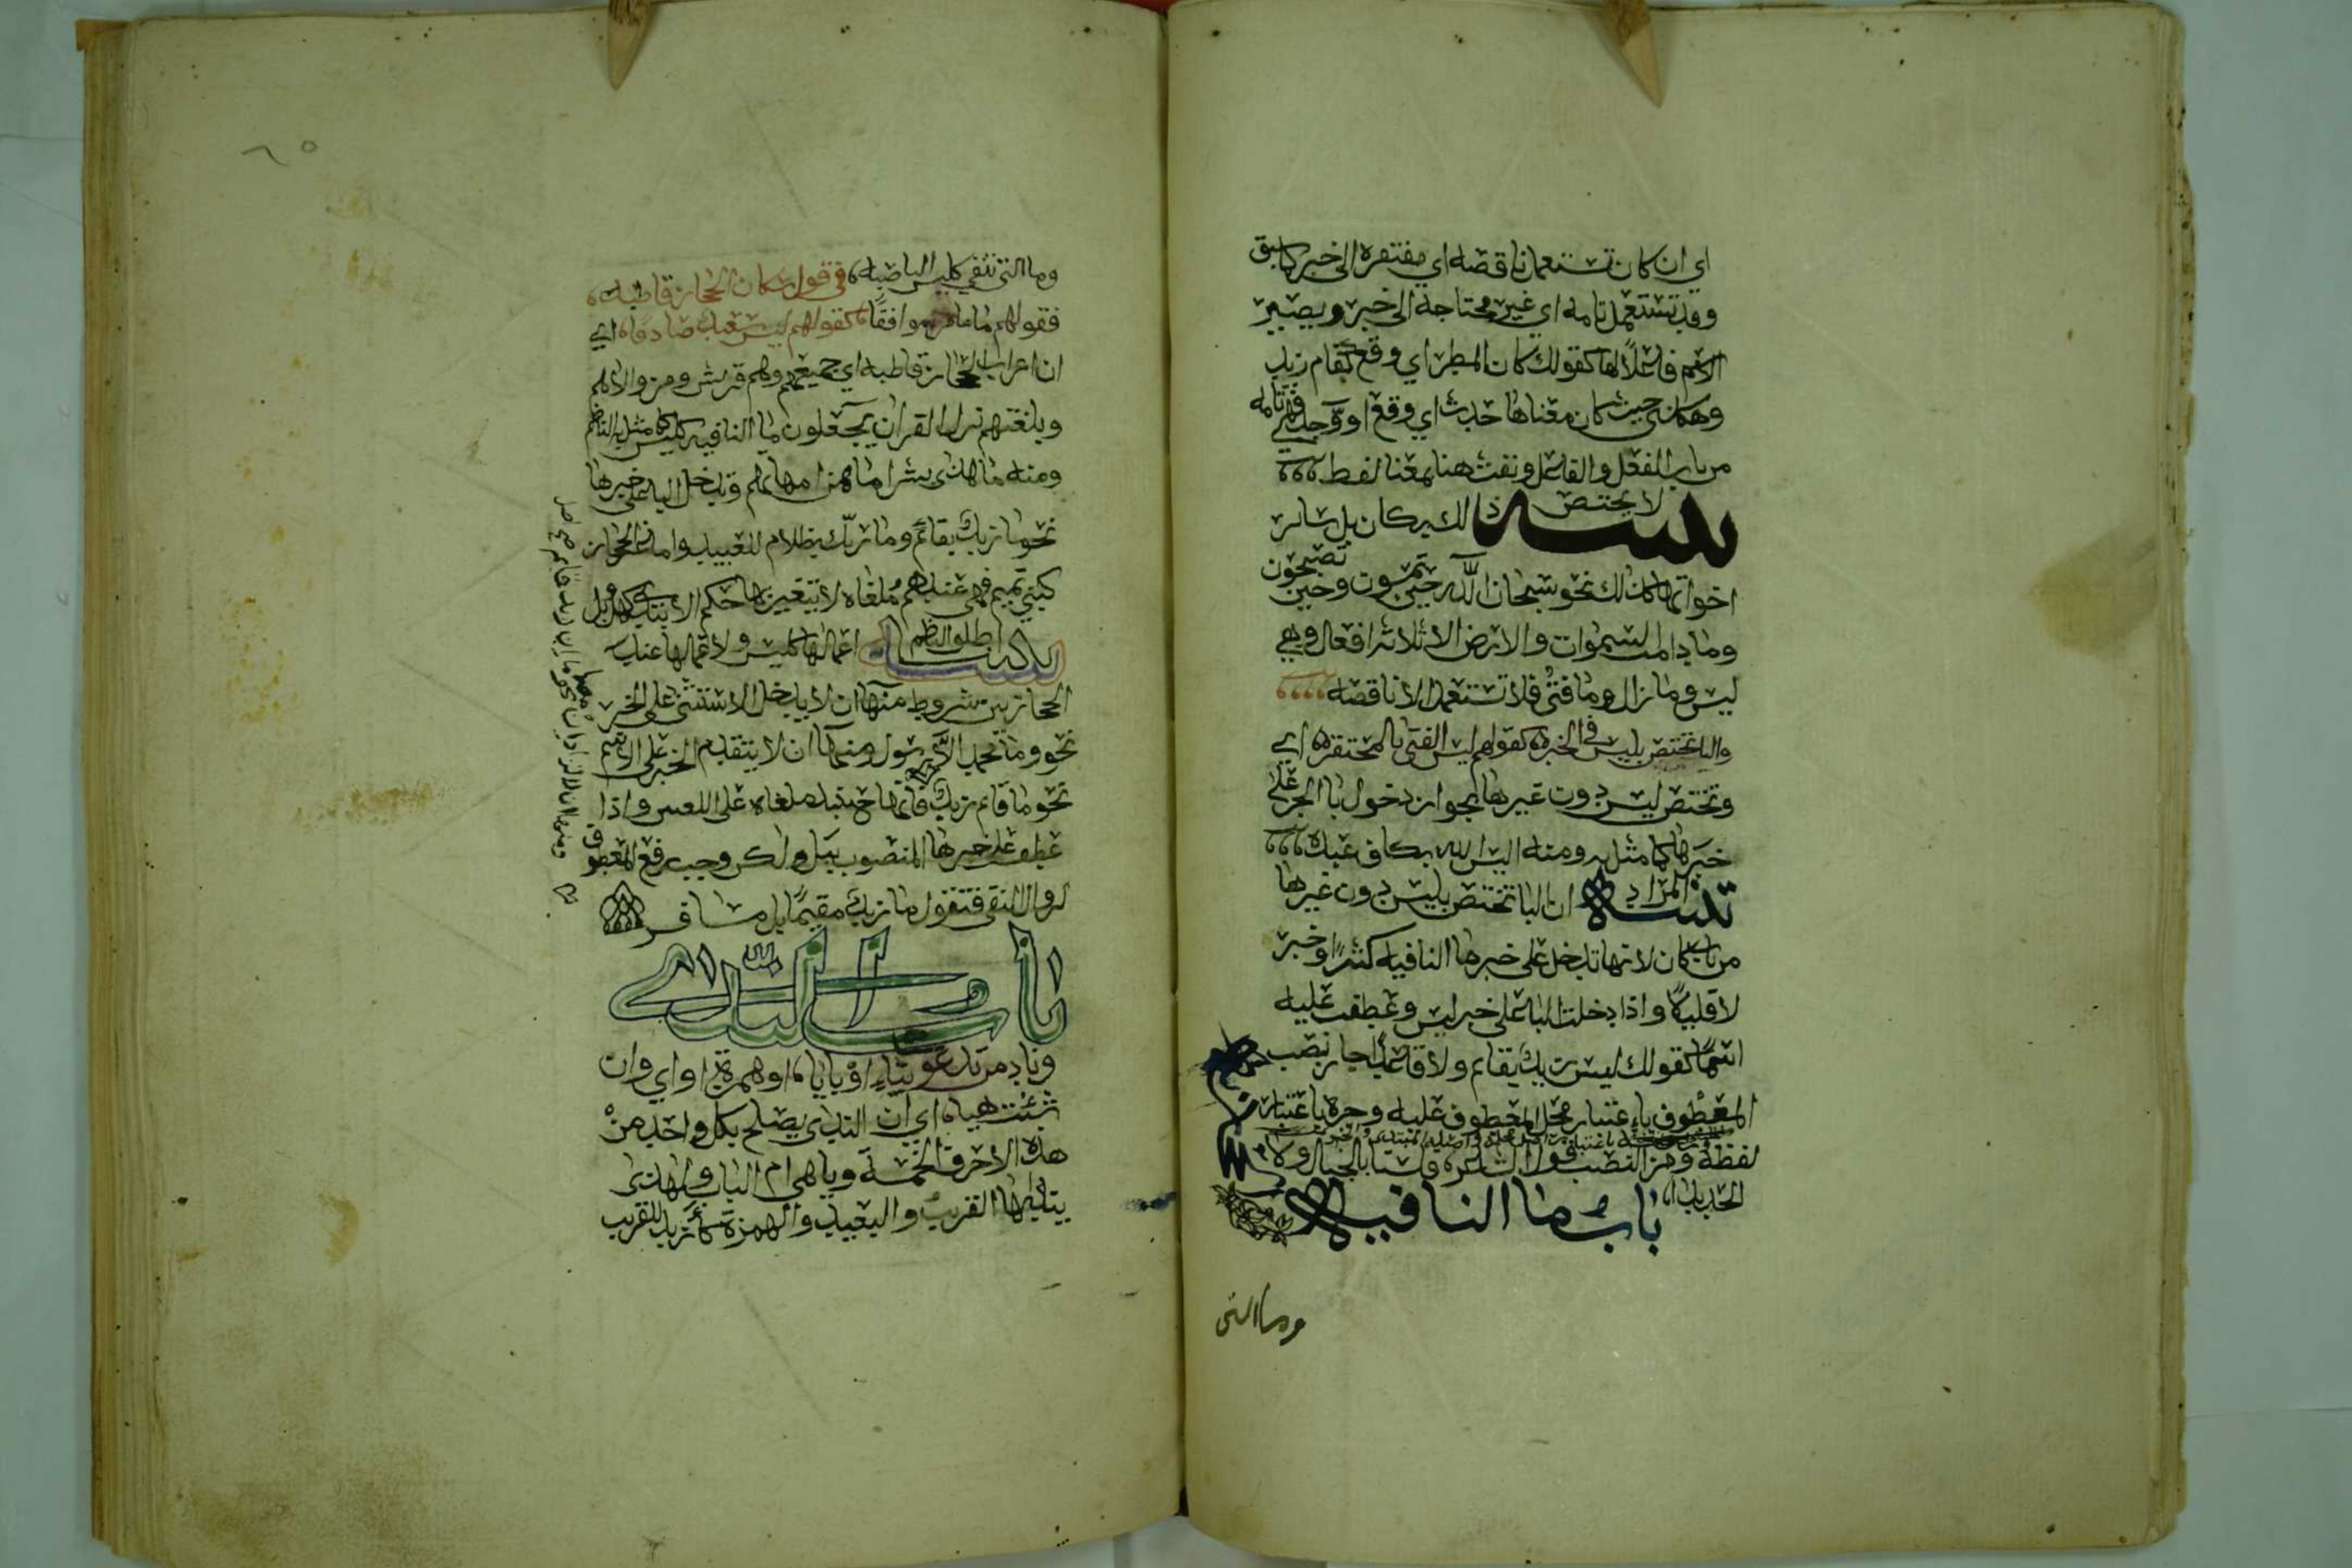 اي ان كان تستعمل ناقصه اي مفتقره الى خبر كما سبق
وقد تستعمل تامه اي غير محتاجه الى خبر ويصير
الاسم فاعلاً لها كقولك كان المطر اي وقع كقام زيد
وهكذى حيث كان معناها حدث اي وقع او وجد فهي تامه
من باب الفعل والفاعل ونفث هنا بمعنا لفظ
تنبيه لا يختص ذالك بكان بل سائر
اخواتها كذلك نحو سبحان الله حين تمسون وحين تصبحون
وما دامت السموات والارض الا ثلاثه افعال وهي
ليس وما زال وما فتئ فلا تستعمل الا ناقصه
والبا تختص بليس في الخبر كقولهم ليس الفتى بالمحتقر اي
وتختص ليس دون غيرها بجواز دخول با الجر على
خبرها كما مثل ومنه اليس الله بكاف عبده
تنبيه المراد ان البا تختص بليس دون غيرها
من باب كان لانها تدخل على خبر ما النافيه كثيرًا وخبر
لا قليلاً واذا دخلت البا على خبر ليس وعطفت عليه
اسمًا كقولك ليس زيد بقائم ولا قاعد جاز نصب
المعطوف باعتبار محل المعطوف عليه وجره باعتبار
لفظه ومن النصب قول الشاعر فلسنا بالجبال ولا
الحديدا
باب ما النافيه
وما التى
٦٥
وما التي تنفي كليس الناصبه في قول سكان الحجاز قاطبه
فقولهم ما عامر موافقًا كقولهم ليس سعيد صادقا اي
ان اعراب الحجاز قاطبه اي جميعهم وهم قريش ومن والاهم
وبلغتهم نزل القران يجعلون ما النافيه كليس كما مثل به الناظم
ومنه ما هذى بشرا ما هن امهاتهم وتدخل البا على خبرها
نحو ما زيد بقائم وما ربك بظلام للعبيد واما غير الحجاز
كبني تميم فهي عندهم ملغاه لا يتغير بها حكم الابتدى كهل وبل
تنبيه اطلق الناظم اعمالها كليس ولاعمالها عند
الحجازيين شروط منها ان لا يدخل الاستثنى على الخبر
نحو وما محمد الا رسول ومنها ان لا يتقدم الخبر على الاسم
نحو ما قائم زيد فانها حينئذ ملغاه على اللغتين واذا
عطف على خبرها المنصوب ببل ولكن وجب رفع المعطوف
لزوال النفي فتقول ما زيد مقيمًا بل مسافر
باب الندى
وناد من تدعو بياء او بايا او همزة او اي وان
شئت هيا اي ان الندى يصلح بكل واحد من
هذه الاحرف الخمسة ويا هي ام الباب ولهذى
ينادى بها القريب والبعيد والهمزة كأزيد للقريب